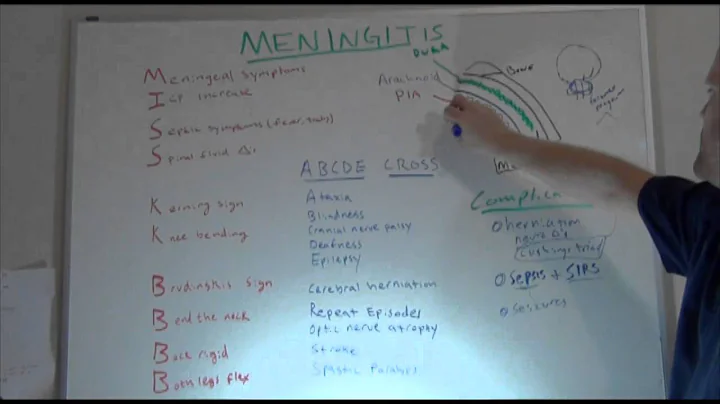 MENINGITIS
DURA
Bone
Arachnoid
PIA
Meningeal symptoms
ICP increase
Septic symptoms (fever,
Spinal fluid Δ's
Kerning sign
Knee bending
Brudinskis sign
Bend the neck
Back rigid
Both legs flex
ABCDE CROSS
Ataxia
Blindness
Cranial nerve palsy
Deafness
Epilepsy
Cerebral herniation
Repeat Episodes
Optic nerve atrophy
Stroke
Spastic
Complica
herniation
neuro Δ's
cushings triad
Sepsis + SIRS
Seizures